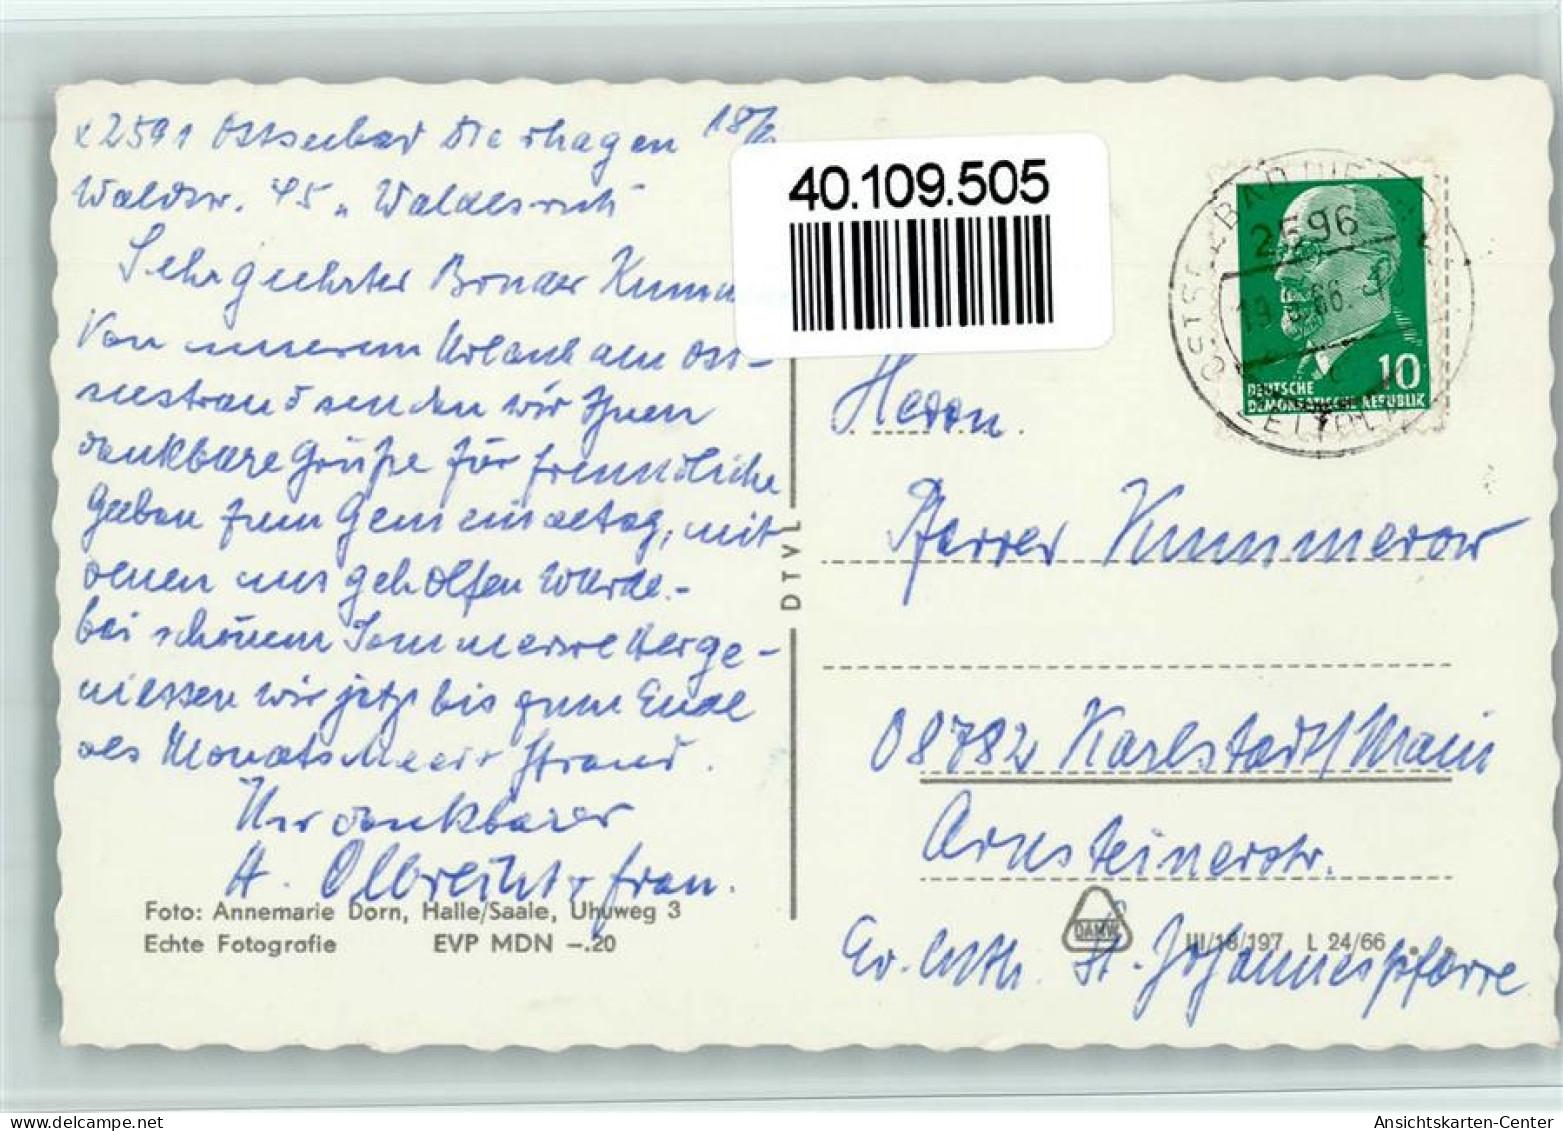 x 2591 Ostseebad Dierhagen 18/
Waldstr. 45 „ Waldesruh
Sehr geehrter Bruder
Von unserem Urlaub am Ost-
seestrand senden wir Ihnen
dankbare Grüße für freundliche
Gaben zum Gemeindetag, mit
denen uns geholfen wurde.-
bei schönem Sommerwetter ge-
niessen wir jetzt bis zum Ende
des Monats Meer + Strand.
Ihr dankbarer
H. Olbricht + frau.
Foto: Annemarie Dorn, Halle/Saale, Uhuweg 3
Echte Fotografie EVP MDN –.20
DTVL
40.109.505
2596
10
DEUTSCHE
DEMOKRATISCHE REPUBLIK
Herrn
Pfarrer Kummerow
08782 Karlstadt/Main
Arnsteinerstr.
Ev. luth. St. Johannespfarre
DAMW
III/18/197 L 24/66
delcampe.net
Ansichtskarten-Center